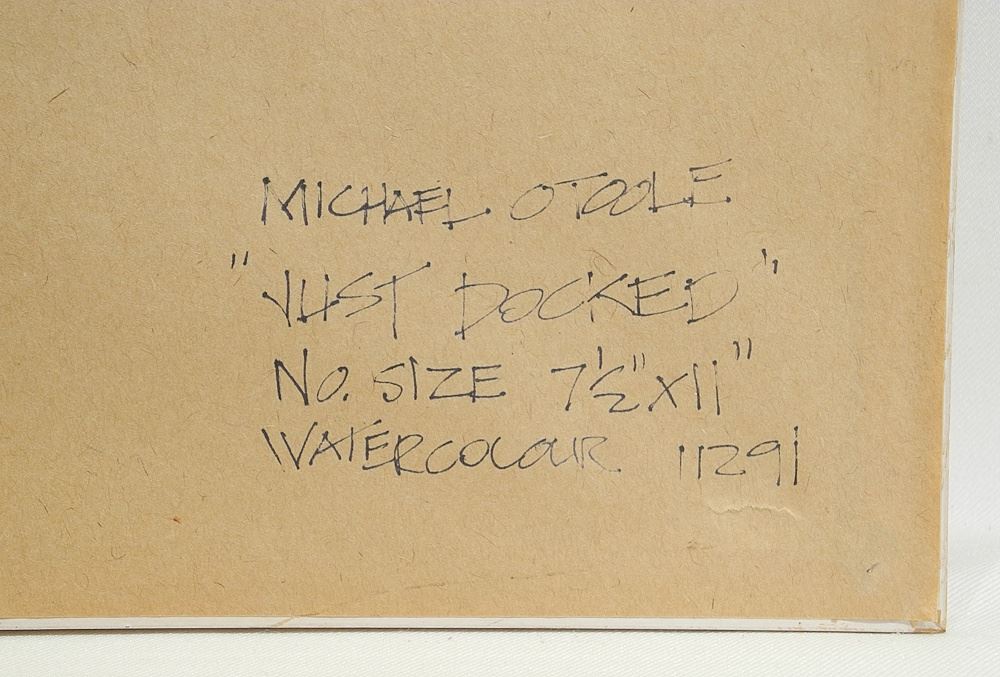 MICHAEL OTOOLE
"JUST DOCKED"
NO. SIZE 7½"X11"
WATERCOLOUR 11291